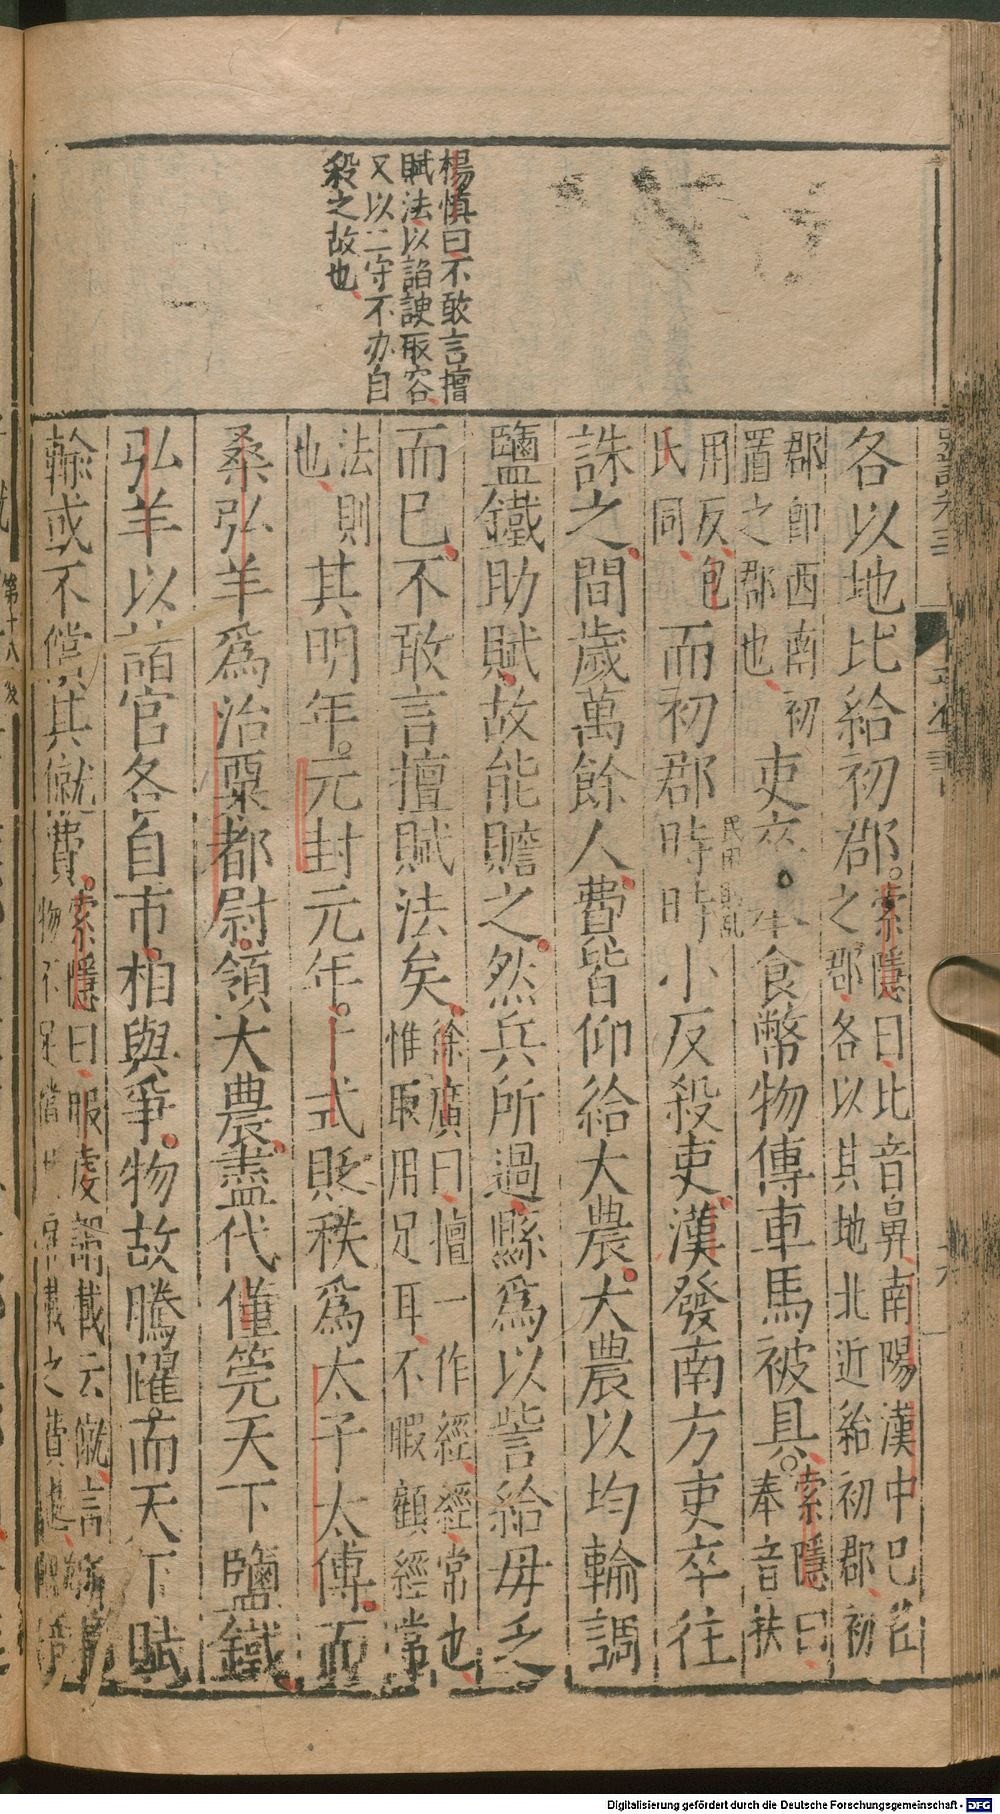 楊慎曰不敢言擅
賦法以諂諛取容
又以二守不办自
殺之故也
各以地比給初郡索隱曰比音鼻南陽漢中巳徃
之郡各以其地北近給初郡初
郡即西南初
置之郡也吏卒奉食幣物傳車馬被具索隱曰
奉音扶
用反包
氏同而初郡時時小反殺吏漢發南方吏卒往
誅之間歲萬餘人費皆仰給大農大農以均輸調
鹽鐵助賦故能贍之然兵所過縣為以訾給毋乏
而巳不敢言擅賦法矣徐廣曰擅一作經經常也
惟取用足耳不暇顧經常
法則
也其明年元封元年卜式貶秩爲太子太傅而
桑弘羊爲治粟都尉領大農盡代僅筦天下鹽鐵
弘羊以諸官各自市相與爭物故騰躍而天下賦
輸或不償其僦費索隱曰服虔
載云僦言
物不足償
載之費
第十八
Digitalisierung gefördert durch die Deutsche Forschungsgemeinschaft - DFG